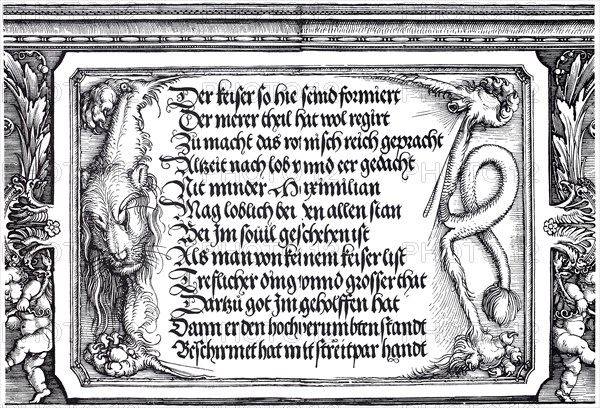 Der keiser so hie seind formiert
Der merer theil hat wol regirt
Zu macht das romisch reich gepracht
Altzeit nach lob vnnd eer gedacht
Nit minder Maximilian
Mag loblich bei den allen stan
Bei Im souil geschehen ist
Als man von keinem keiser list
Treflicher ding vnnd grosser that
Dartzu got Im geholffen hat
Dann er den hochverumbten standt
Beschirmet hat mit streitpar handt